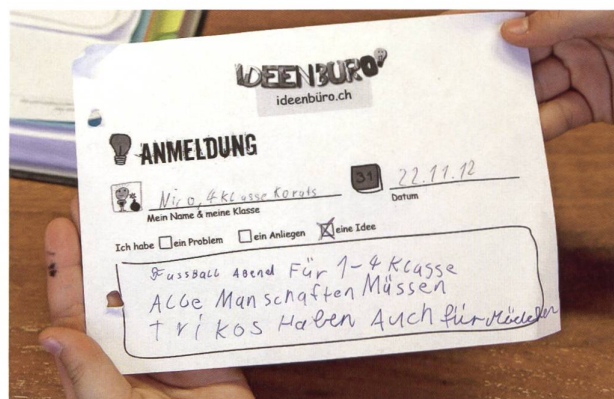 IDEENBÜRO
ideenbüro.ch
ANMELDUNG
Niro, 4 Klasse
31
22.11.12
Mein Name & meine Klasse
Datum
Ich habe ein Problem ein Anliegen eine Idee
Fussball Abend Für 1-4 Klasse
Alle Manschaften Müssen
trikos Haben Auch für Mädchen